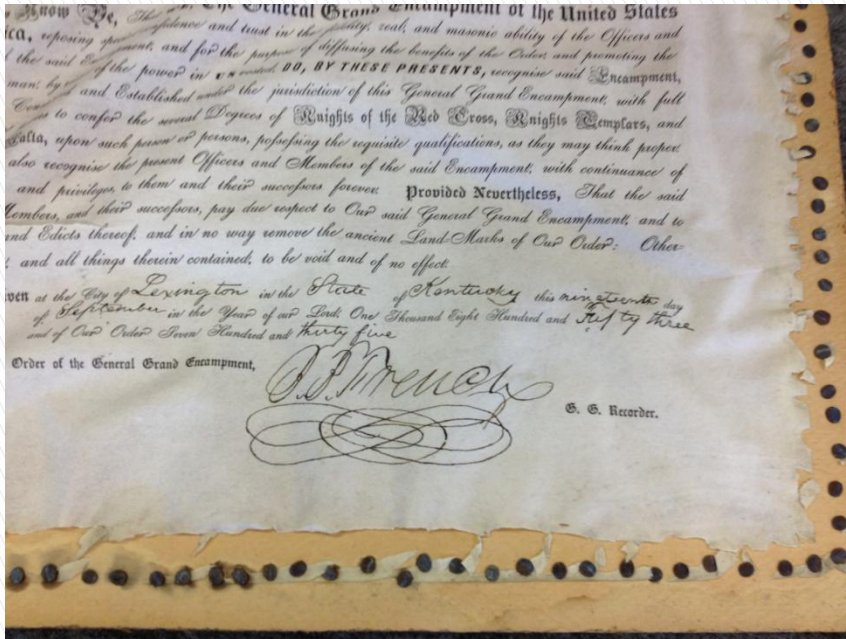 Know Ye, The General Grand Encampment of the United States
ica, reposing confidence and trust in the fidelity, real, and masonic ability of the Officers and
the said ment, and for the purpose of diffusing the benefits of the Order, and promoting the
of the power in us vested, DO, BY THESE PRESENTS, recognise said Encampment,
and Established under the jurisdiction of this General Grand Encampment, with full
to confer the several Degrees of Knights of the Red Cross, Knights Templars, and
alta, upon such person or persons, possessing the requisite qualifications, as they may think proper.
also recognise the present Officers and Members of the said Encampment, with continuance of
and privileges, to them and their successors forever. Provided Nevertheless, That the said
Members, and their successors, pay due respect to Our said General Grand Encampment, and to
and Edicts thereof, and in no way remove the ancient Land-Marks of Our Order: Other-
and all things therein contained, to be void and of no effect.
ven at the City of Lexington in the State of Kentucky this nineteenth day
of September in the Year of our Lord, One Thousand Eight Hundred and Fifty three
and of Our Order Seven Hundred and thirty five
Order of the General Grand Encampment,
French
G. G. Recorder.